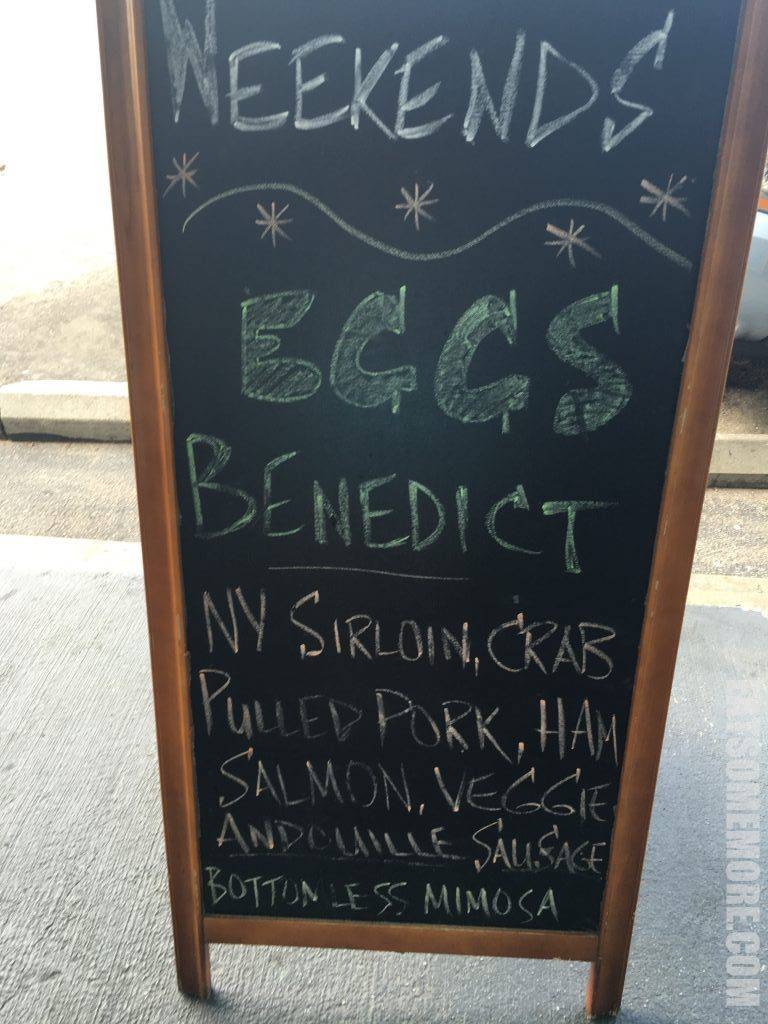 WEEKENDS
EGGS
BENEDICT
NY SIRLOIN, CRAB
PULLED PORK, HAM
SALMON, VEGGIE
ANDOUILLE SAUSAGE
BOTTOMLESS MIMOSA
EATSOMEMORE.COM